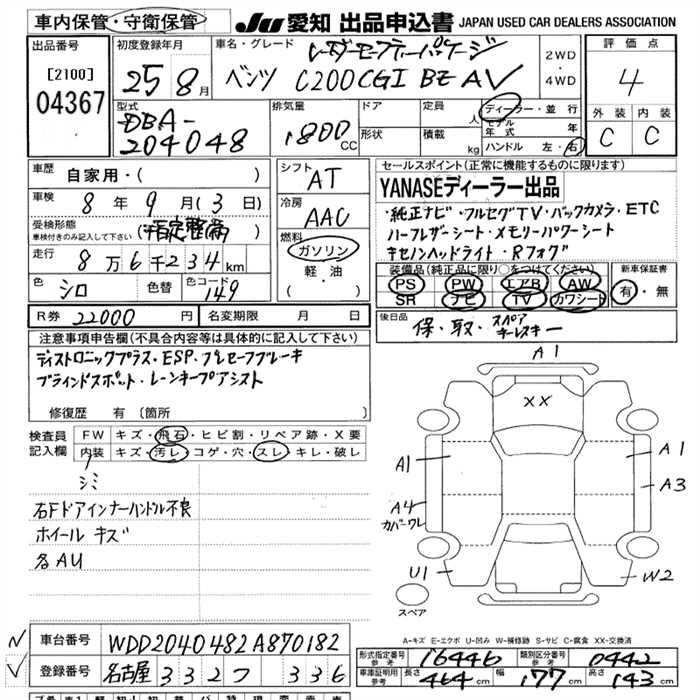 車内保管・守衛保管
JU 愛知 出品申込書 JAPAN USED CAR DEALERS ASSOCIATION
出品番号
[2100]
04367
初度登録年月
25 8月
車名・グレード
レーダーセーフティーパッケージ
ベンツ C200 CGI BE AV
2WD
・
4WD
評価点
4
外装 内装
C C
型式
DBA-
204048
排気量
1800 CC
ドア
形状
定員 人
積載 kg
ディーラー・並行
モデル年式 年
ハンドル 左・右
車歴 自家用・( )
車検 8年9月(3日)
受検形態
車検付きのみ記入して下さい (指定整備)
走行 8万6千234km
色 シロ 色替 色コード 149
シフト
AT
冷房
AAC
燃料
ガソリン
軽・油
( )
セールスポイント(正常に機能するものに限ります)
YANASEディーラー出品
・純正ナビ・フルセグTV・バックカメラ・ETC
ハーフレザーシート・メモリーパワーシート
キセノンヘッドライト・Rフォグ
装備品(純正品に限り○をつけてください) 新車保証書
PS PW エアB AW 有・無
SR ナビ TV カワシート
R券 22000円 名変期限 月 日
後日品
保・取・スペアキーレスキー
注意事項申告欄(不具合内容等は具体的に記入して下さい)
ディストロニックプラス・ESP・プレセーフブレーキ
ブラインドスポット・レーンキープアシスト
修復歴 有 〔箇所
検査員記入欄
FW キズ・飛石・ヒビ割・リペア跡・X要
内装 キズ・汚レ・コゲ・穴・スレ・キレ・破レ
シミ
右Fドアインナーハンドル不良
ホイール キズ
各AU
A1
XX
A1
A1
A3
A4
カバーワレ
U1
W2
スペア
A-キズ E-エクボ U-凹み W-補修跡 S-サビ C-腐食 XX-交換済
車台番号 WDD2040482A870182
登録番号 名古屋 332 つ 336
形式指定番号 参考 16446 類別区分番号 参考 0442
車庫証明用 参考 長さ 464cm 幅 177cm 高さ 143cm